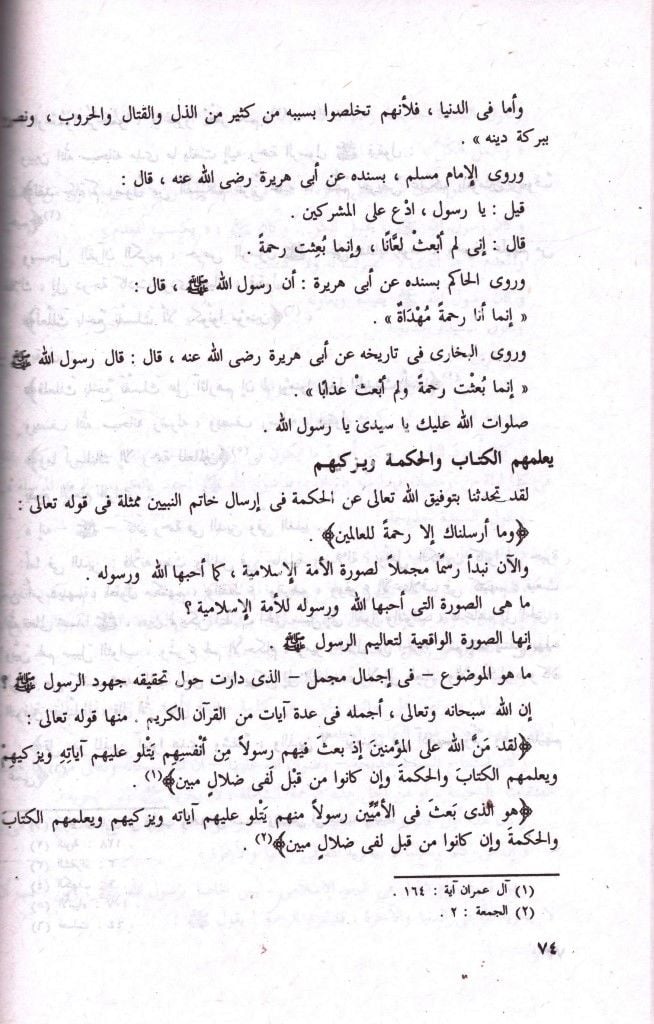 وأما فى الدنيا ، فلأنهم تخلصوا بسببه من كثير من الذل والقتال والحروب ،
ببركة دينه » .
وروى الإمام مسلم ، بسنده عن أبى هريرة رضى الله عنه ، قال :
قيل : يا رسول ، ادْع على المشركين .
قال : إنى لم أبْعثْ لعَّانًا ، وإنما بُعِثت رحمةً .
وروى الحاكم بسنده عن أبى هريرة : أن رسول الله ﷺ ، قال :
« إنما أنا رحمةً مُهْدَاةٌ » .
وروى البخارى فى تاريخه عن أبى هريرة رضى الله عنه ، قال : قال رسول الله ﷺ
« إنما بُعثْت رحمةً ولم أبعثْ عذابًا » .
صلوات الله عليك يا سيدى يا رسول الله .
يعلمهم الكتاب والحكمة ويزكيهم
لقد تحدثنا بتوفيق الله تعالى عن الحكمة فى إرسال خاتم النبيين ممثلة فى قوله تعالى :
﴿وما أرسلناك إلا رحمةً للعالمين﴾ .
والآن نبدأ رسمًا مجملاً لصورة الأمة الإسلامية ، كما أحبها الله ورسوله .
ما هى الصورة التى أحبها الله ورسوله للأمة الإسلامية ؟
إنها الصورة الواقعية لتعاليم الرسول ﷺ .
ما هو الموضوع – فى إجمال مجمل – الذى دارت حول تحقيقه جهود الرسول ﷺ ؟
إن الله سبحانه وتعالى ، أجمله فى عدة آيات من القرآن الكريم . منها قوله تعالى :
﴿لقد مَنَّ الله على المؤمنينَ إذ بعثَ فيهم رسولاً مِن أنْفسهِم يَتْلو عليهم آياتهِ ويزكيهمْ
ويعلمهم الكتابَ والحكمةَ وإن كانوا من قبْل لَفى ضلالٍ مبين﴾(١) .
﴿هو الذى بَعثَ فى الأمِّيِّين رسولاً منهم يَتْلو عليهم آياته ويزكيهم ويعلمهم الكتابَ
والحكمةَ وإن كانوا من قبل لفى ضلالٍ مبين﴾(٢) .
(١) آل عمران آية : ١٦٤ .
(٢) الجمعة : ٢ .
٧٤